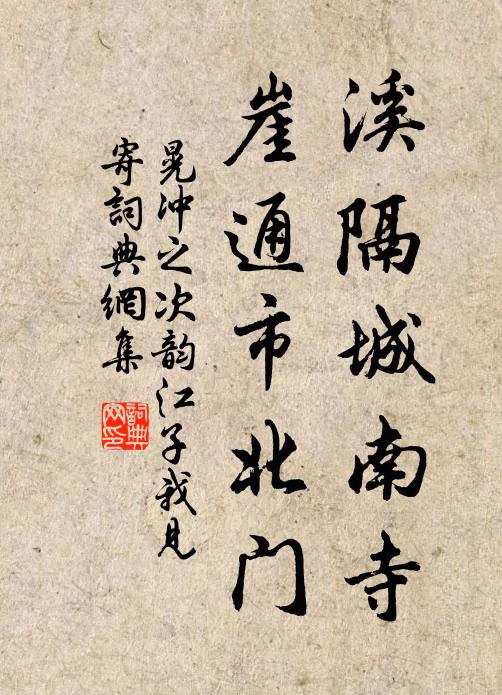 溪隔城南寺
崖通市北门
晃冲之次韵江子我见
寄詞典網集
詞典
网印